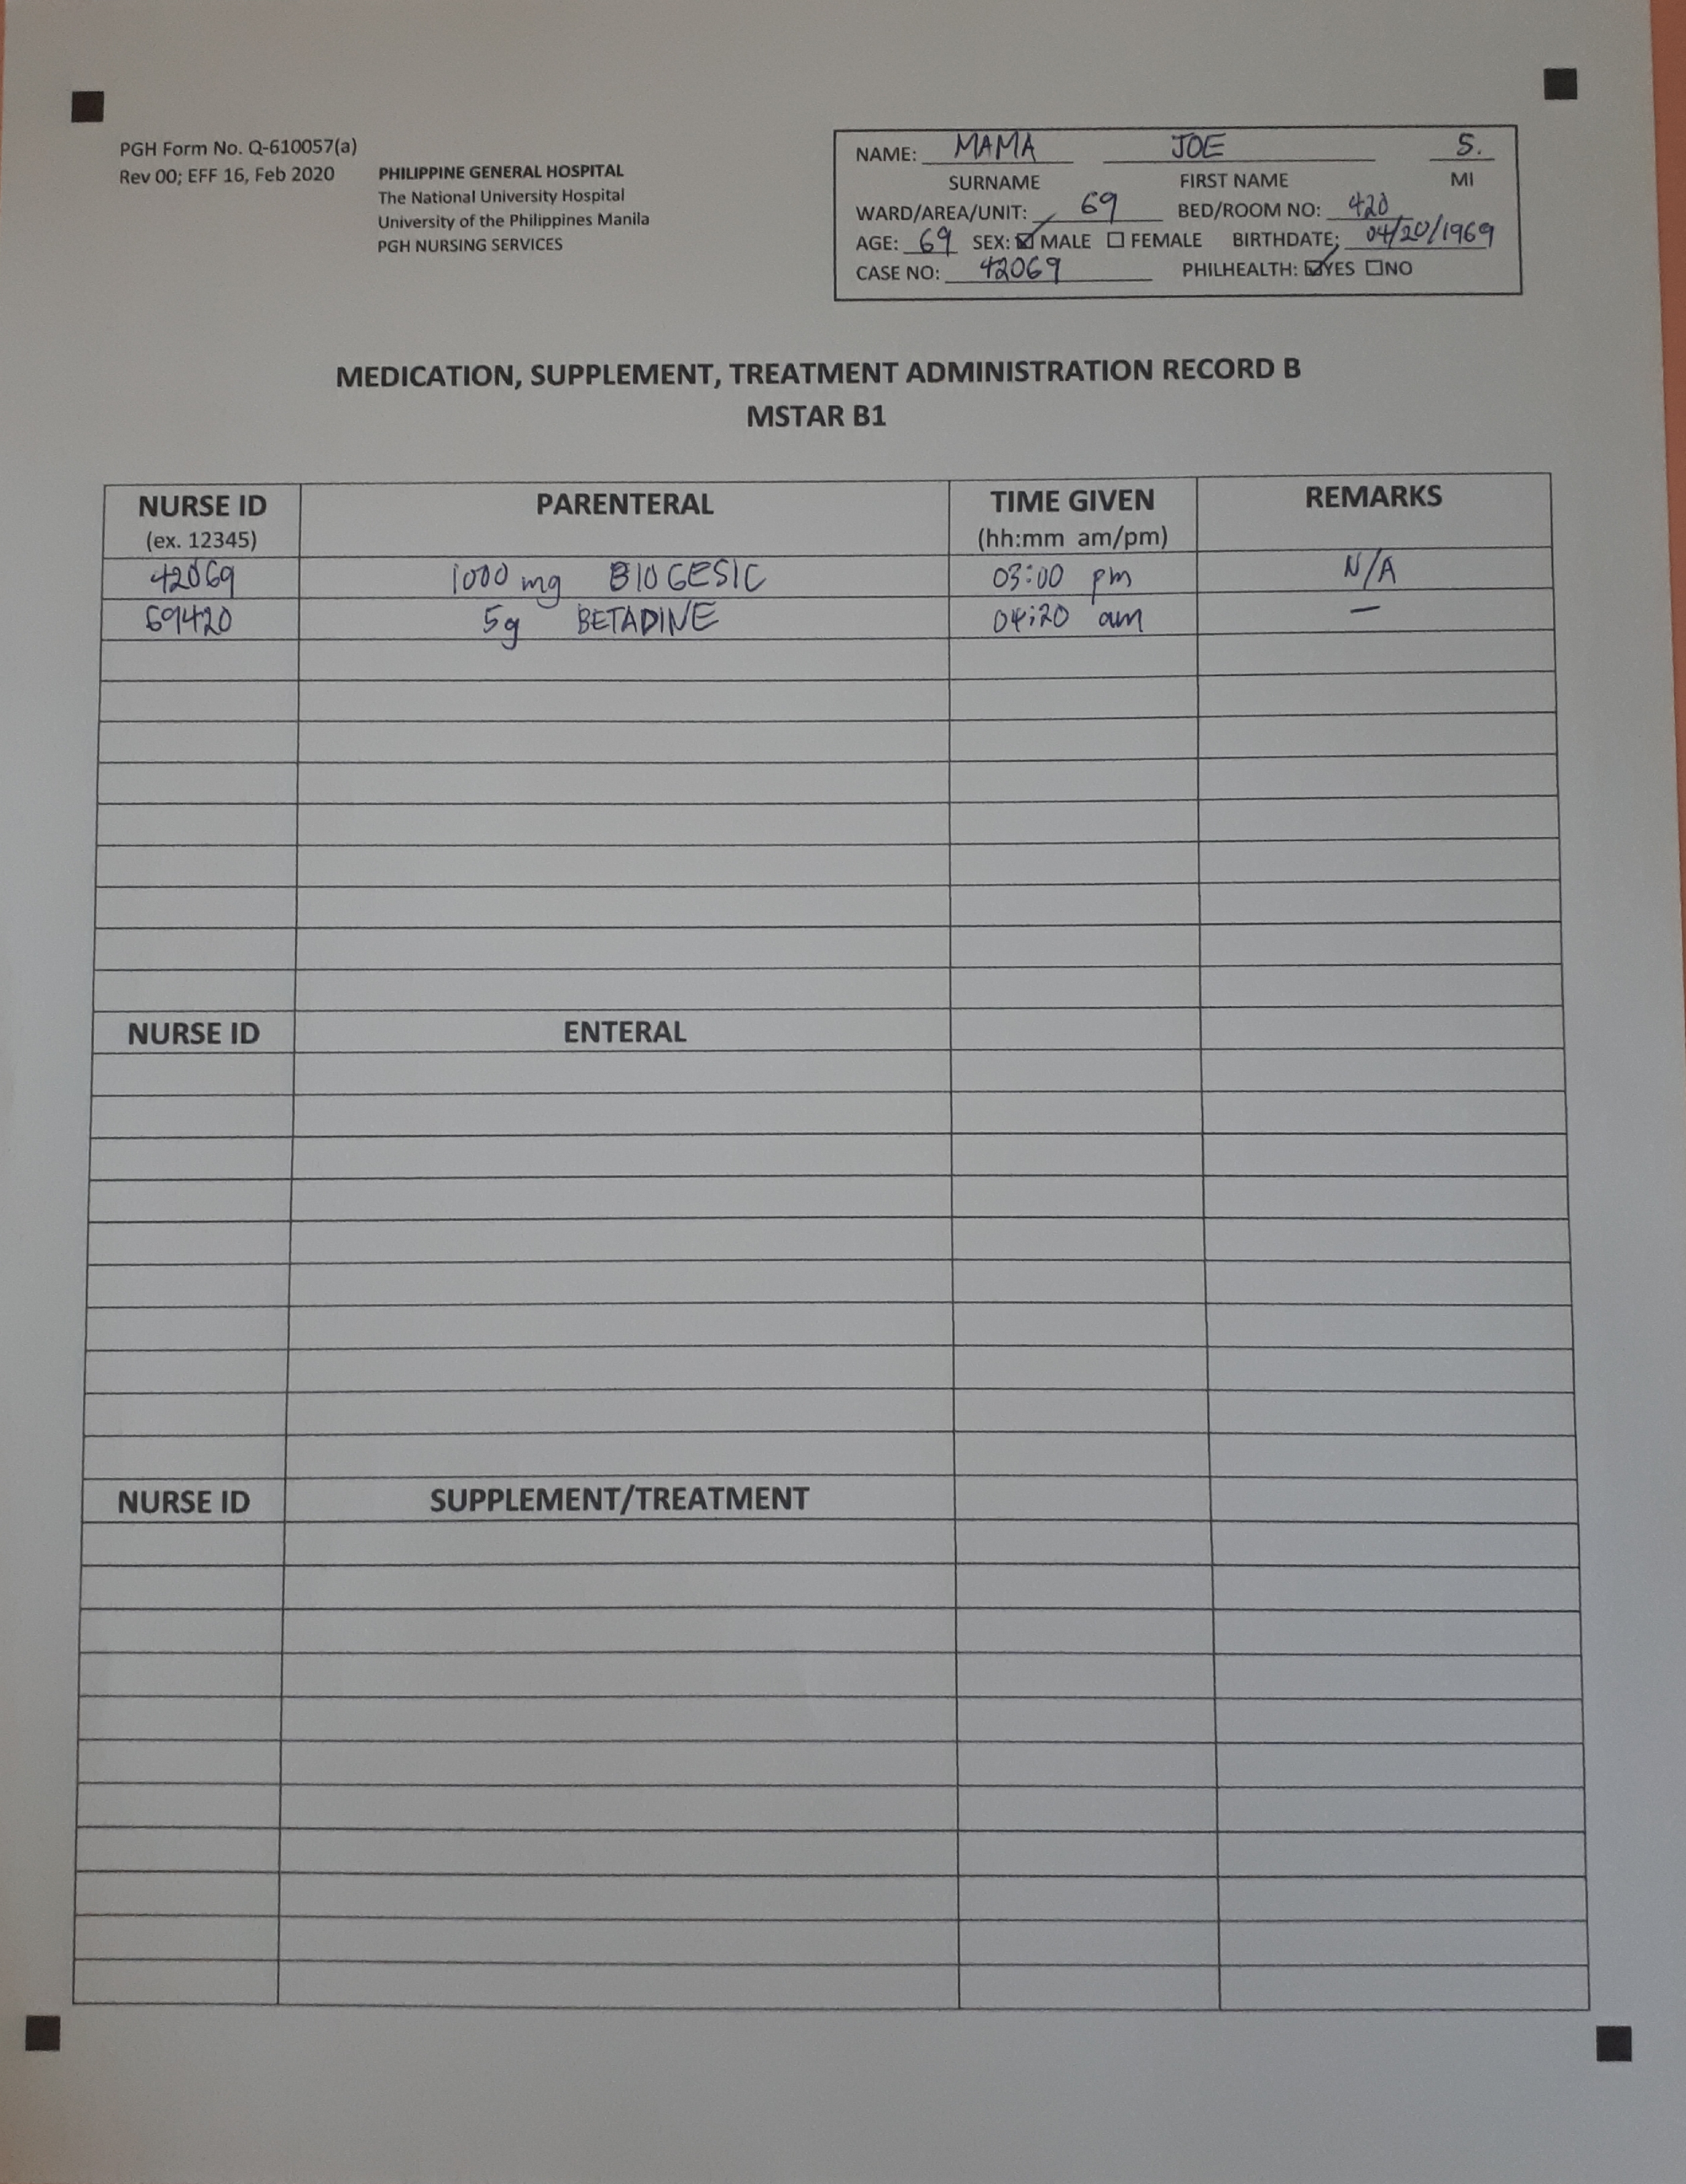 PGH Form No. Q-610057(a)
Rev 00; EFF 16, Feb 2020
PHILIPPINE GENERAL HOSPITAL
The National University Hospital
University of the Philippines Manila
PGH NURSING SERVICES
NAME: MAMA JOE S.
SURNAME FIRST NAME MI
WARD/AREA/UNIT: 69 BED/ROOM NO: 420
AGE: 69 SEX: ☑ MALE ☐ FEMALE BIRTHDATE: 04/20/1969
CASE NO: 42069 PHILHEALTH: ☑YES ☐NO
MEDICATION, SUPPLEMENT, TREATMENT ADMINISTRATION RECORD B
MSTAR B1
NURSE ID PARENTERAL TIME GIVEN REMARKS
(ex. 12345) (hh:mm am/pm)
42069 1000 mg BIOGESIC 03:00 pm N/A
69420 5g BETADINE 04:20 am —
NURSE ID ENTERAL
NURSE ID SUPPLEMENT/TREATMENT